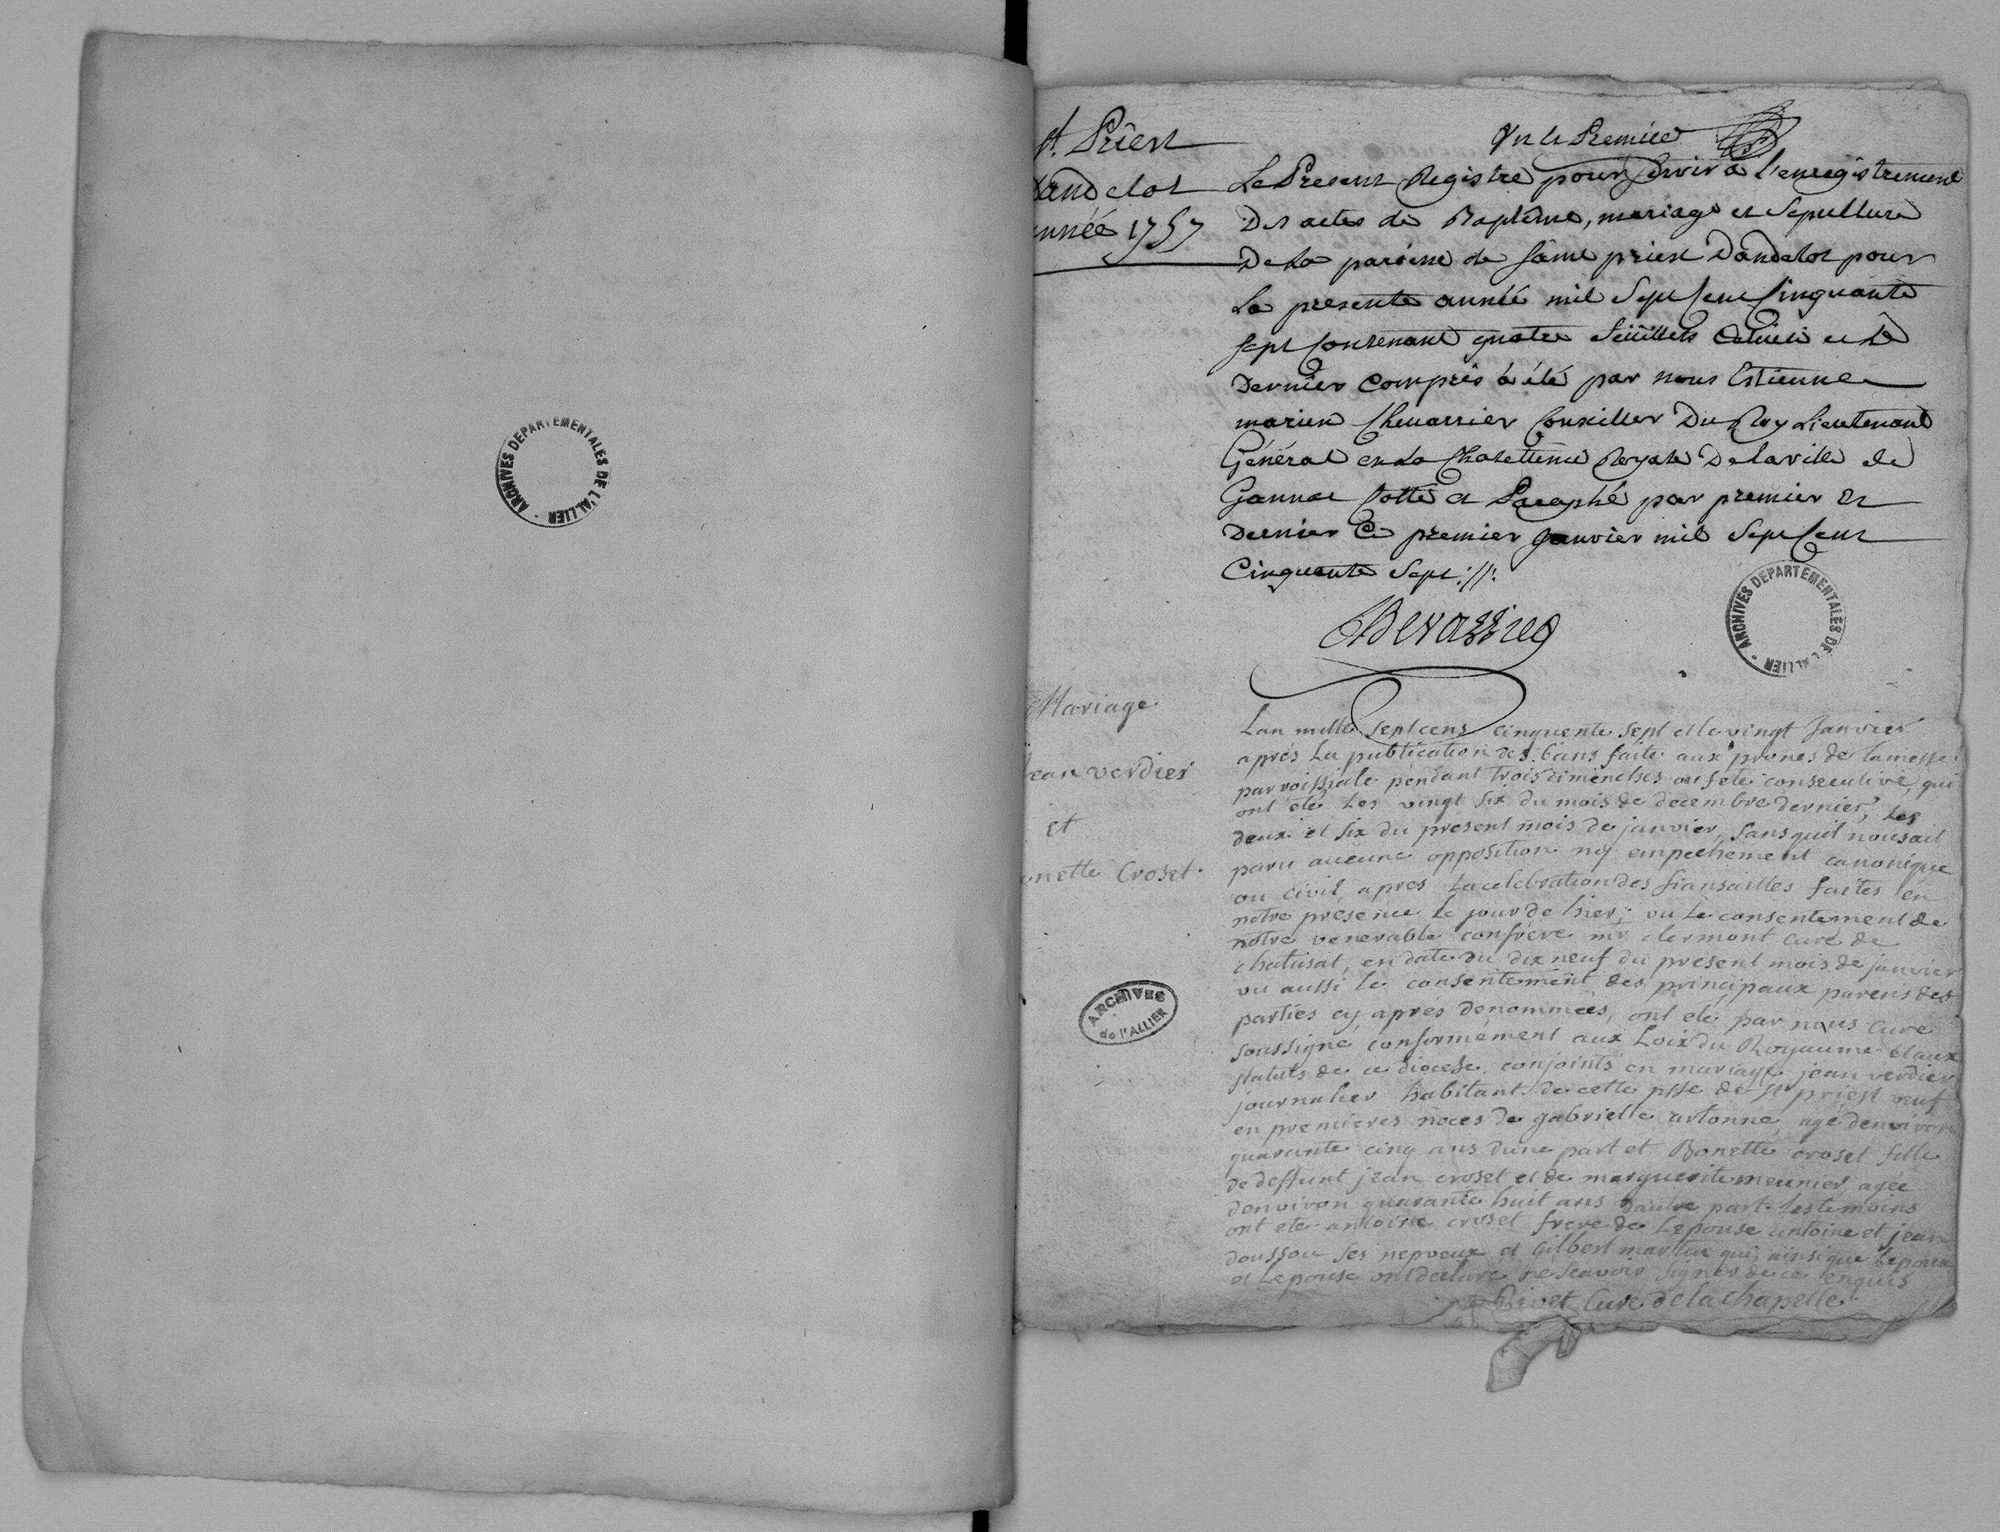 ARCHIVES DEPARTEMENTALES DE L'ALLIER
St. Priest
Dandelot
année 1757
un et Premier
Le Present Registre pour servir a l'enregistrement
Des actes de Baptême, mariage et sepulture
De la paroisse de saint priest Dandelot pour
la presente année mil sept cent cinquante
sept contenant quatre feüillets celuici et le
dernier compris à été par nous Estienne
marien Chevarrier Conseiller Du Roy Lieutenant
Général en la Chatellenie Royale De la ville de
Gannat Cotté et Paraphé par premier et
dernier Ce premier janvier mil sept cent
Cinquante sept ://:
Chevarrier
ARCHIVES DEPARTEMENTALES DE L'ALLIER
Mariage
jean verdier
et
onette Croset.
ARCHIVES
de l'ALLIER
Lan mille septcens cinquente sept et le vingt Janvier
aprés La publication des bans faite aux prones de la messe
parroissiale pendant trois dimenches ou fete consecutive, qui
ont eté Les vingt six du mois de decembre dernier, Les
deux et six du present mois de janvier, sans quil nous ait
paru aucune opposition ny empechement canonique
ou civil, apres La celebration des fiansailles faites en
notre presence le jour de hier; vu Le consentement de
notre venerable confrere mr clermont curé de
chatusat, en date du dix neuf du present mois de janvier
vu aussi le consentement des principaux parens des
parties cy aprés denommées, ont eté par nous curé
soussigné conformément aux Loix du Royaume et aux
statuts de ce diocese conjoints en mariage jean verdier
journalier habitant de cette psse de st priest veuf
en premieres noces de gabrielle artonne agé denviron
quarante cinq ans dune part et Bonette croset fille
de deffunt jean croset et de marguerite meunier agée
denviron quarante huit ans dautre part. Les temoins
ont eté antoine croset frere de Lepouse antoine et jean
doussou ses nepveux et Gilbert martin qui ainsi que Lepoux
et Lepouse ont declaré ne scavoir signer de ce enquis
Rivet Curé de la chapelle